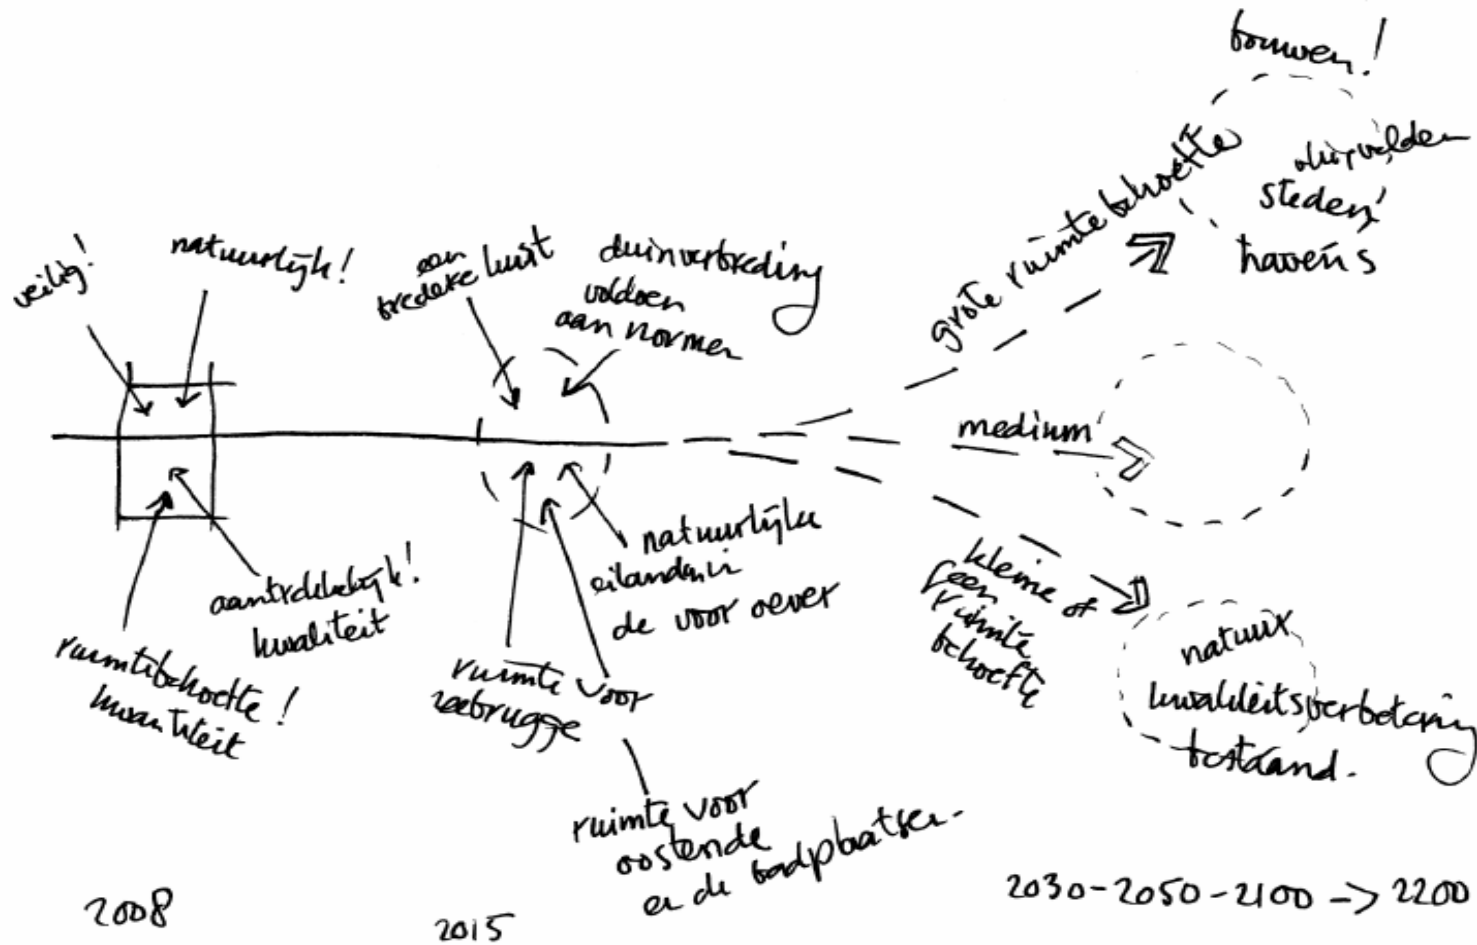 veilig!
natuurlijk!
ruimtebehoefte!
kwantiteit
aantrekkelijk!
kwaliteit
2008
een
bredere kust
duinverbreding
voldoen
aan normen
natuurlijke
eilanden in
de voor oever
ruimte voor
zeebrugge
ruimte voor
oostende
en de badplaatsen.
2015
grote ruimte behoefte
bouwen!
steden
havens
medium
kleine of
geen
ruimte
behoefte
natuur
kwaliteitsverbetering
bestaand.
2030-2050-2100 -> 2200